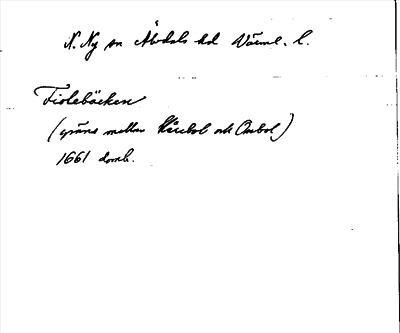 N. Ny sn Älvdals hd Värml. l.
Fiolebäcken
(gräns mellan Kårebol och Osebol)
1661 domb.